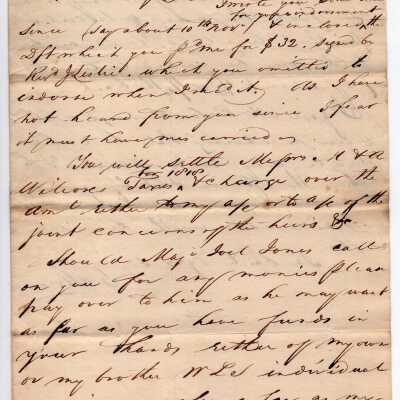 I wrote you some time
for your indorsement
since (say about 10th Novr) & inclosed the
Dft which you pd me for $32. signed by
Revd J Leslie. which you omitted to
indorse when I recd it. As I have
not heard from you since I fear
it must have miscarried
You will settle Messrs. A & R
for 1818
Wilcoxs Taxes & charge over the
Amt either to my a/c or to a/c of the
joint concerns of the heirs &c
Should Maj. Joel Jones call
on you for any monies please
pay over to him as he may want
as far as you have funds in
your hands either of my own
or my brother W L S individual
as my